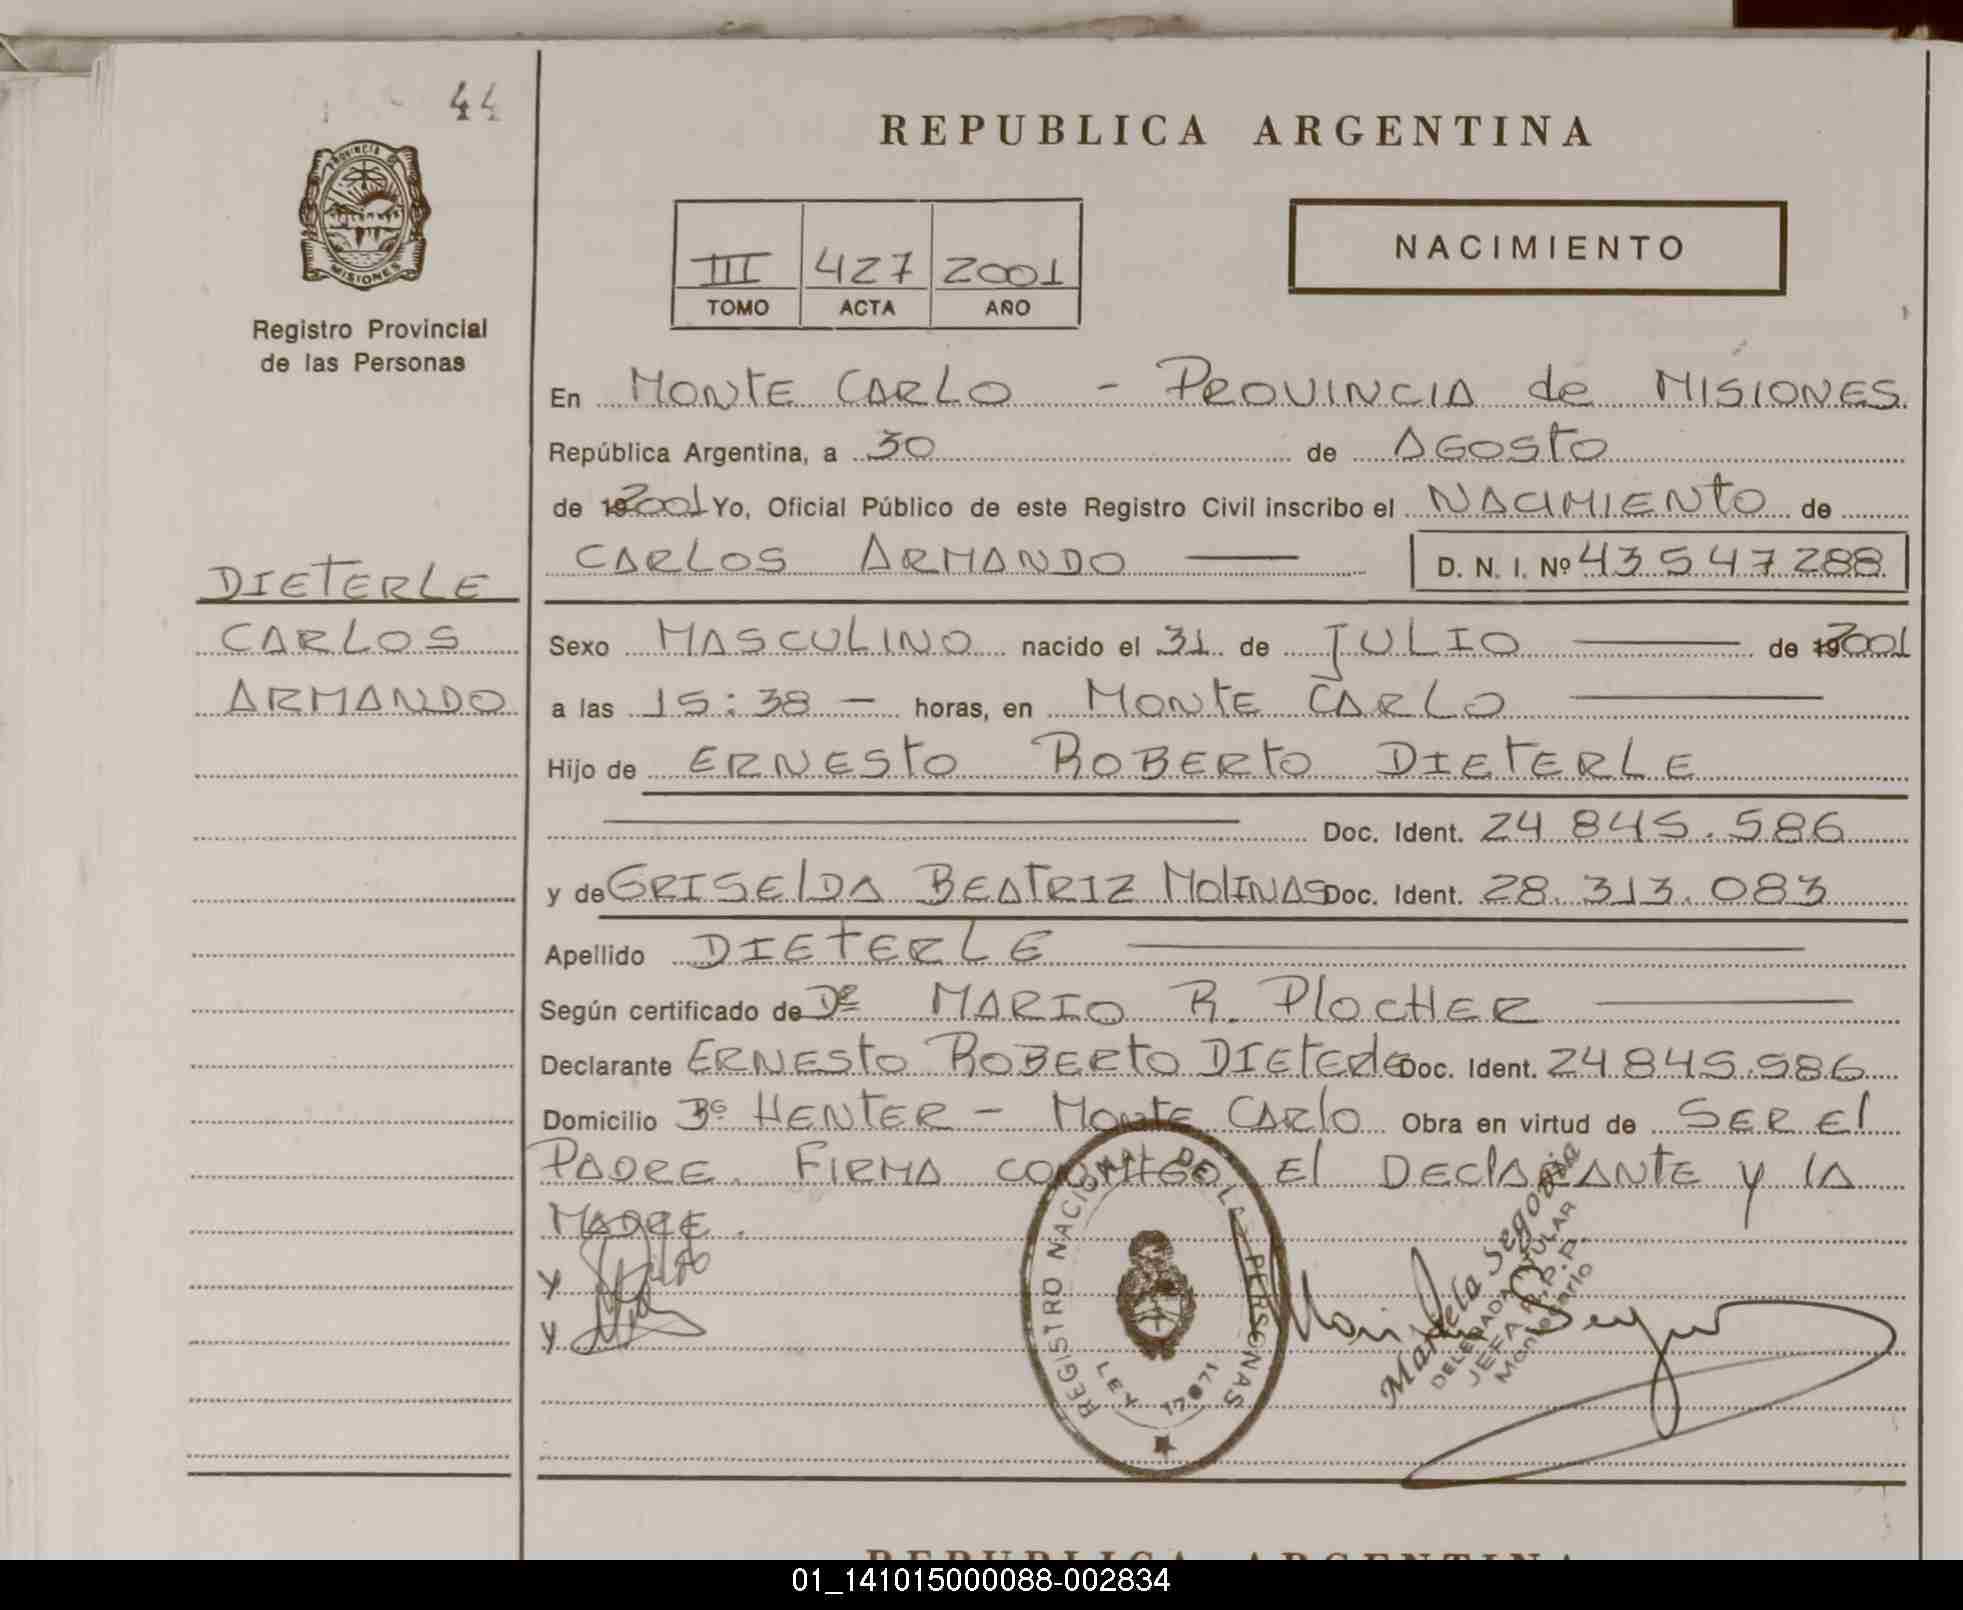 44
REPUBLICA ARGENTINA
PROVINCIA DE
MISIONES
Registro Provincial
de las Personas
III 427 2001
TOMO ACTA AÑO
NACIMIENTO
En MONTE CARLO - PROVINCIA de MISIONES
República Argentina, a 30 de AGOSTO
de 2001 Yo, Oficial Público de este Registro Civil inscribo el NACIMIENTO de
CARLOS ARMANDO D. N. I. Nº 43547288
DIETERLE
CARLOS
ARMANDO
Sexo MASCULINO nacido el 31 de JULIO de 2001
a las 15:38 - horas, en MONTE CARLO
Hijo de ERNESTO ROBERTO DIETERLE
Doc. Ident. 24 845.586
y de GRISELDA BEATRIZ MOLINAS Doc. Ident. 28.313.083
Apellido DIETERLE
Según certificado de Dr MARIO R. PLOCHER
Declarante ERNESTO ROBERTO DIETERLE Doc. Ident. 24.845.586
Domicilio Bº HENTER - MONTE CARLO Obra en virtud de SER El
PADRE. FIRMA CONMIGO El DEClARANTE y lA
MADRE.
REGISTRO NACIONAL DE LAS PERSONAS
LEY 17671
Mariela Segovia
DELEGADA TITULAR
JEFA R.P.P.
Montecarlo
REPUBLICA ARGENTINA
01_141015000088-002834